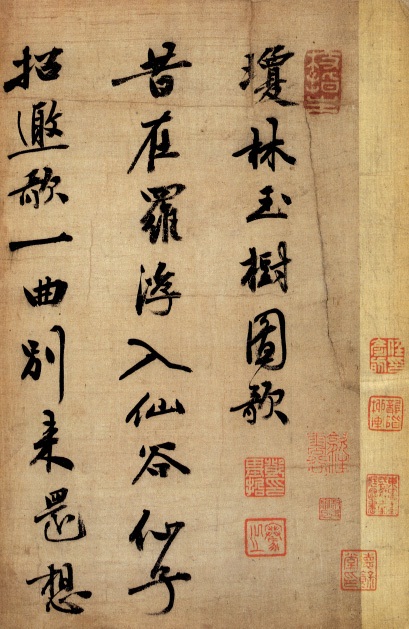 瓊林玉樹圖歌
昔在羅浮入仙谷仙子
招邀歌一曲別來還想